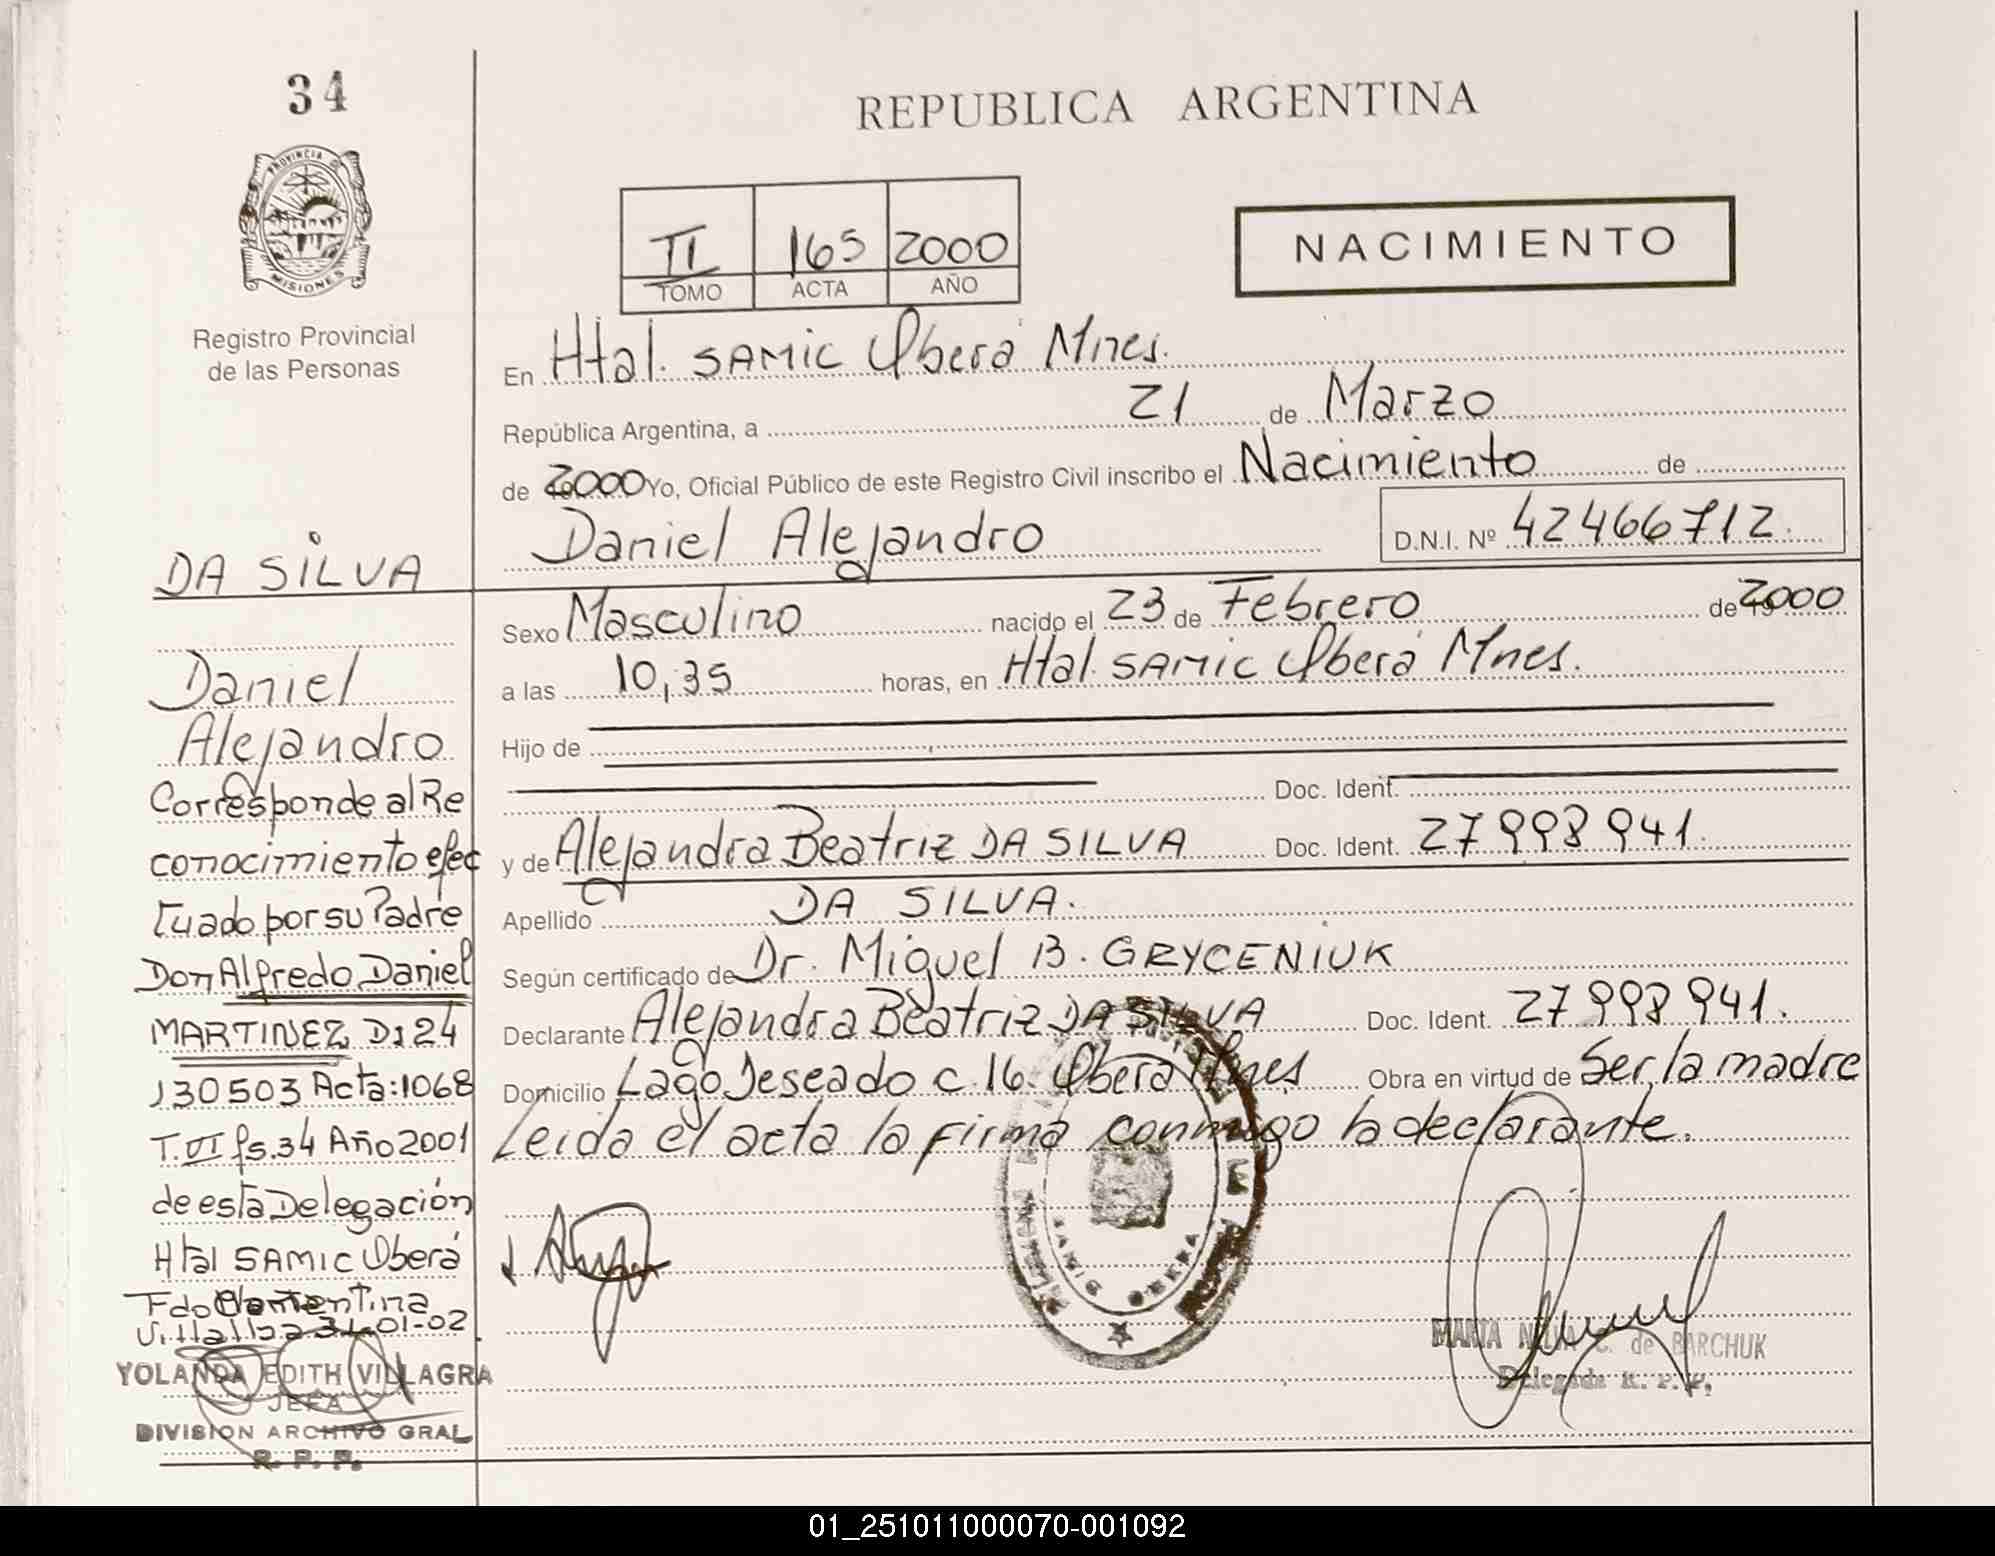 34
REPUBLICA ARGENTINA
PROVINCIA DE
MISIONES
Registro Provincial
de las Personas
II 165 2000
TOMO ACTA AÑO
NACIMIENTO
En Htal. SAMIC Oberá Mnes.
República Argentina, a 21 de Marzo
de 2000 Yo, Oficial Público de este Registro Civil inscribo el Nacimiento de
Daniel Alejandro D.N.I. Nº 42466712.
Sexo Masculino nacido el 23 de Febrero de 2000
a las 10,35 horas, en Htal. SAMIC Oberá Mnes.
Hijo de
Doc. Ident.
y de Alejandra Beatriz DA SILVA Doc. Ident. 27998941.
Apellido DA SILVA.
Según certificado de Dr. Miguel B. GRYCENIUK
Declarante Alejandra Beatriz DA SILVA Doc. Ident. 27998941.
Domicilio Lago Deseado c. 16. Oberá Mnes Obra en virtud de Ser la madre
Leida el acta la firma conmigo la declarante.
DA SILVA
Daniel
Alejandro
Corresponde al Re
conocimiento efec
tuado por su Padre
Don Alfredo Daniel
MARTINEZ DJ 24
130503 Acta: 1068
T. VI fs. 34 Año 2001
de esta Delegación
Htal SAMIC Oberá
Fdo Clementina
Villalba 31-01-02
YOLANDA EDITH VILLAGRA
JEFA
DIVISION ARCHIVO GRAL
R. P. P.
SAMIC OBERA
MARIA C. de BARCHUK
Delegada R. P. P.
01_251011000070-001092